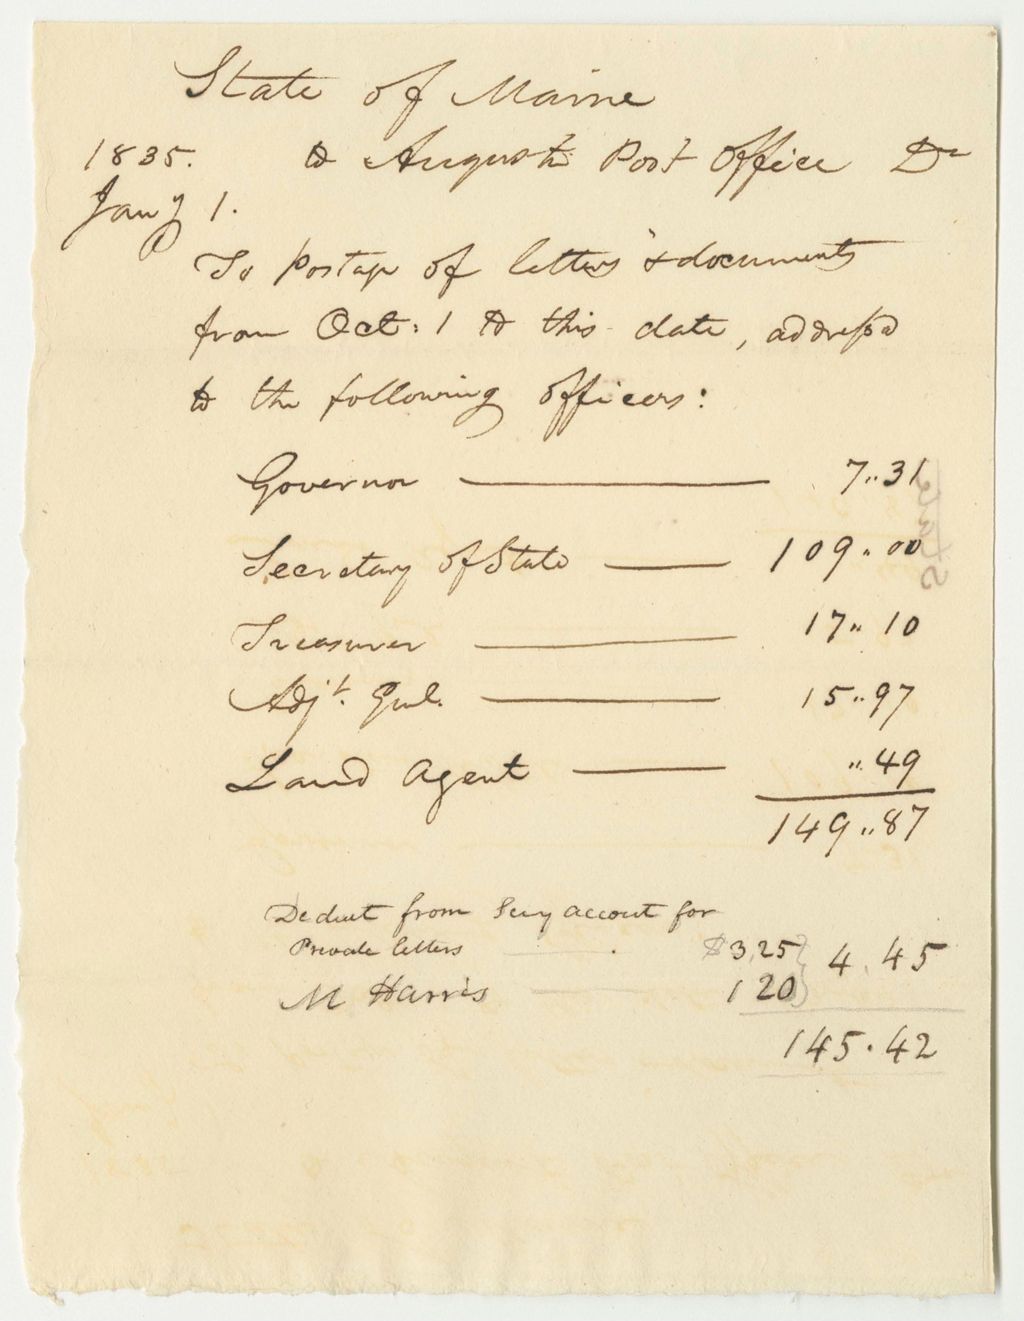 State of Maine
1835. to Augusta Post Office Dr
Jany 1.
To postage of letters & documents
from Oct: 1 to this date, addressd
to the following officers:
Governor 7..31
Secretary of State 109..00
Treasurer 17..10
Adjt. Genl. 15..97
Land Agent ..49
149..87
Deduct from Secy account for
Private letters $3,25 4.45
M Harris 1 20
145.42